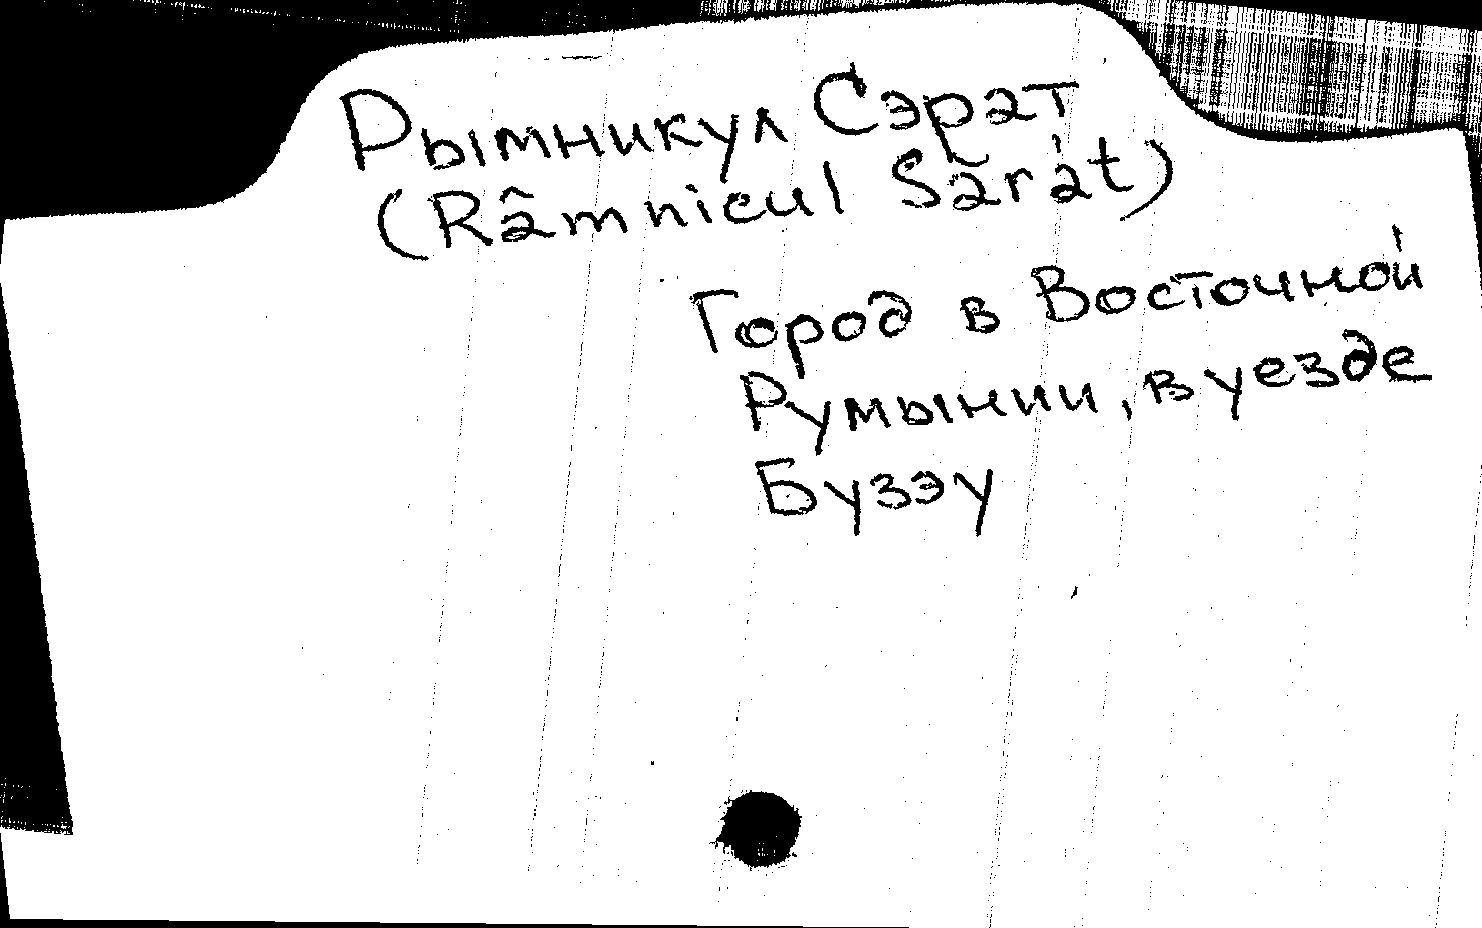 Рымникул Сэрат
(Râmnicul Sărăt)
Город в Восточной
Румынии, в уезде
Бузэу